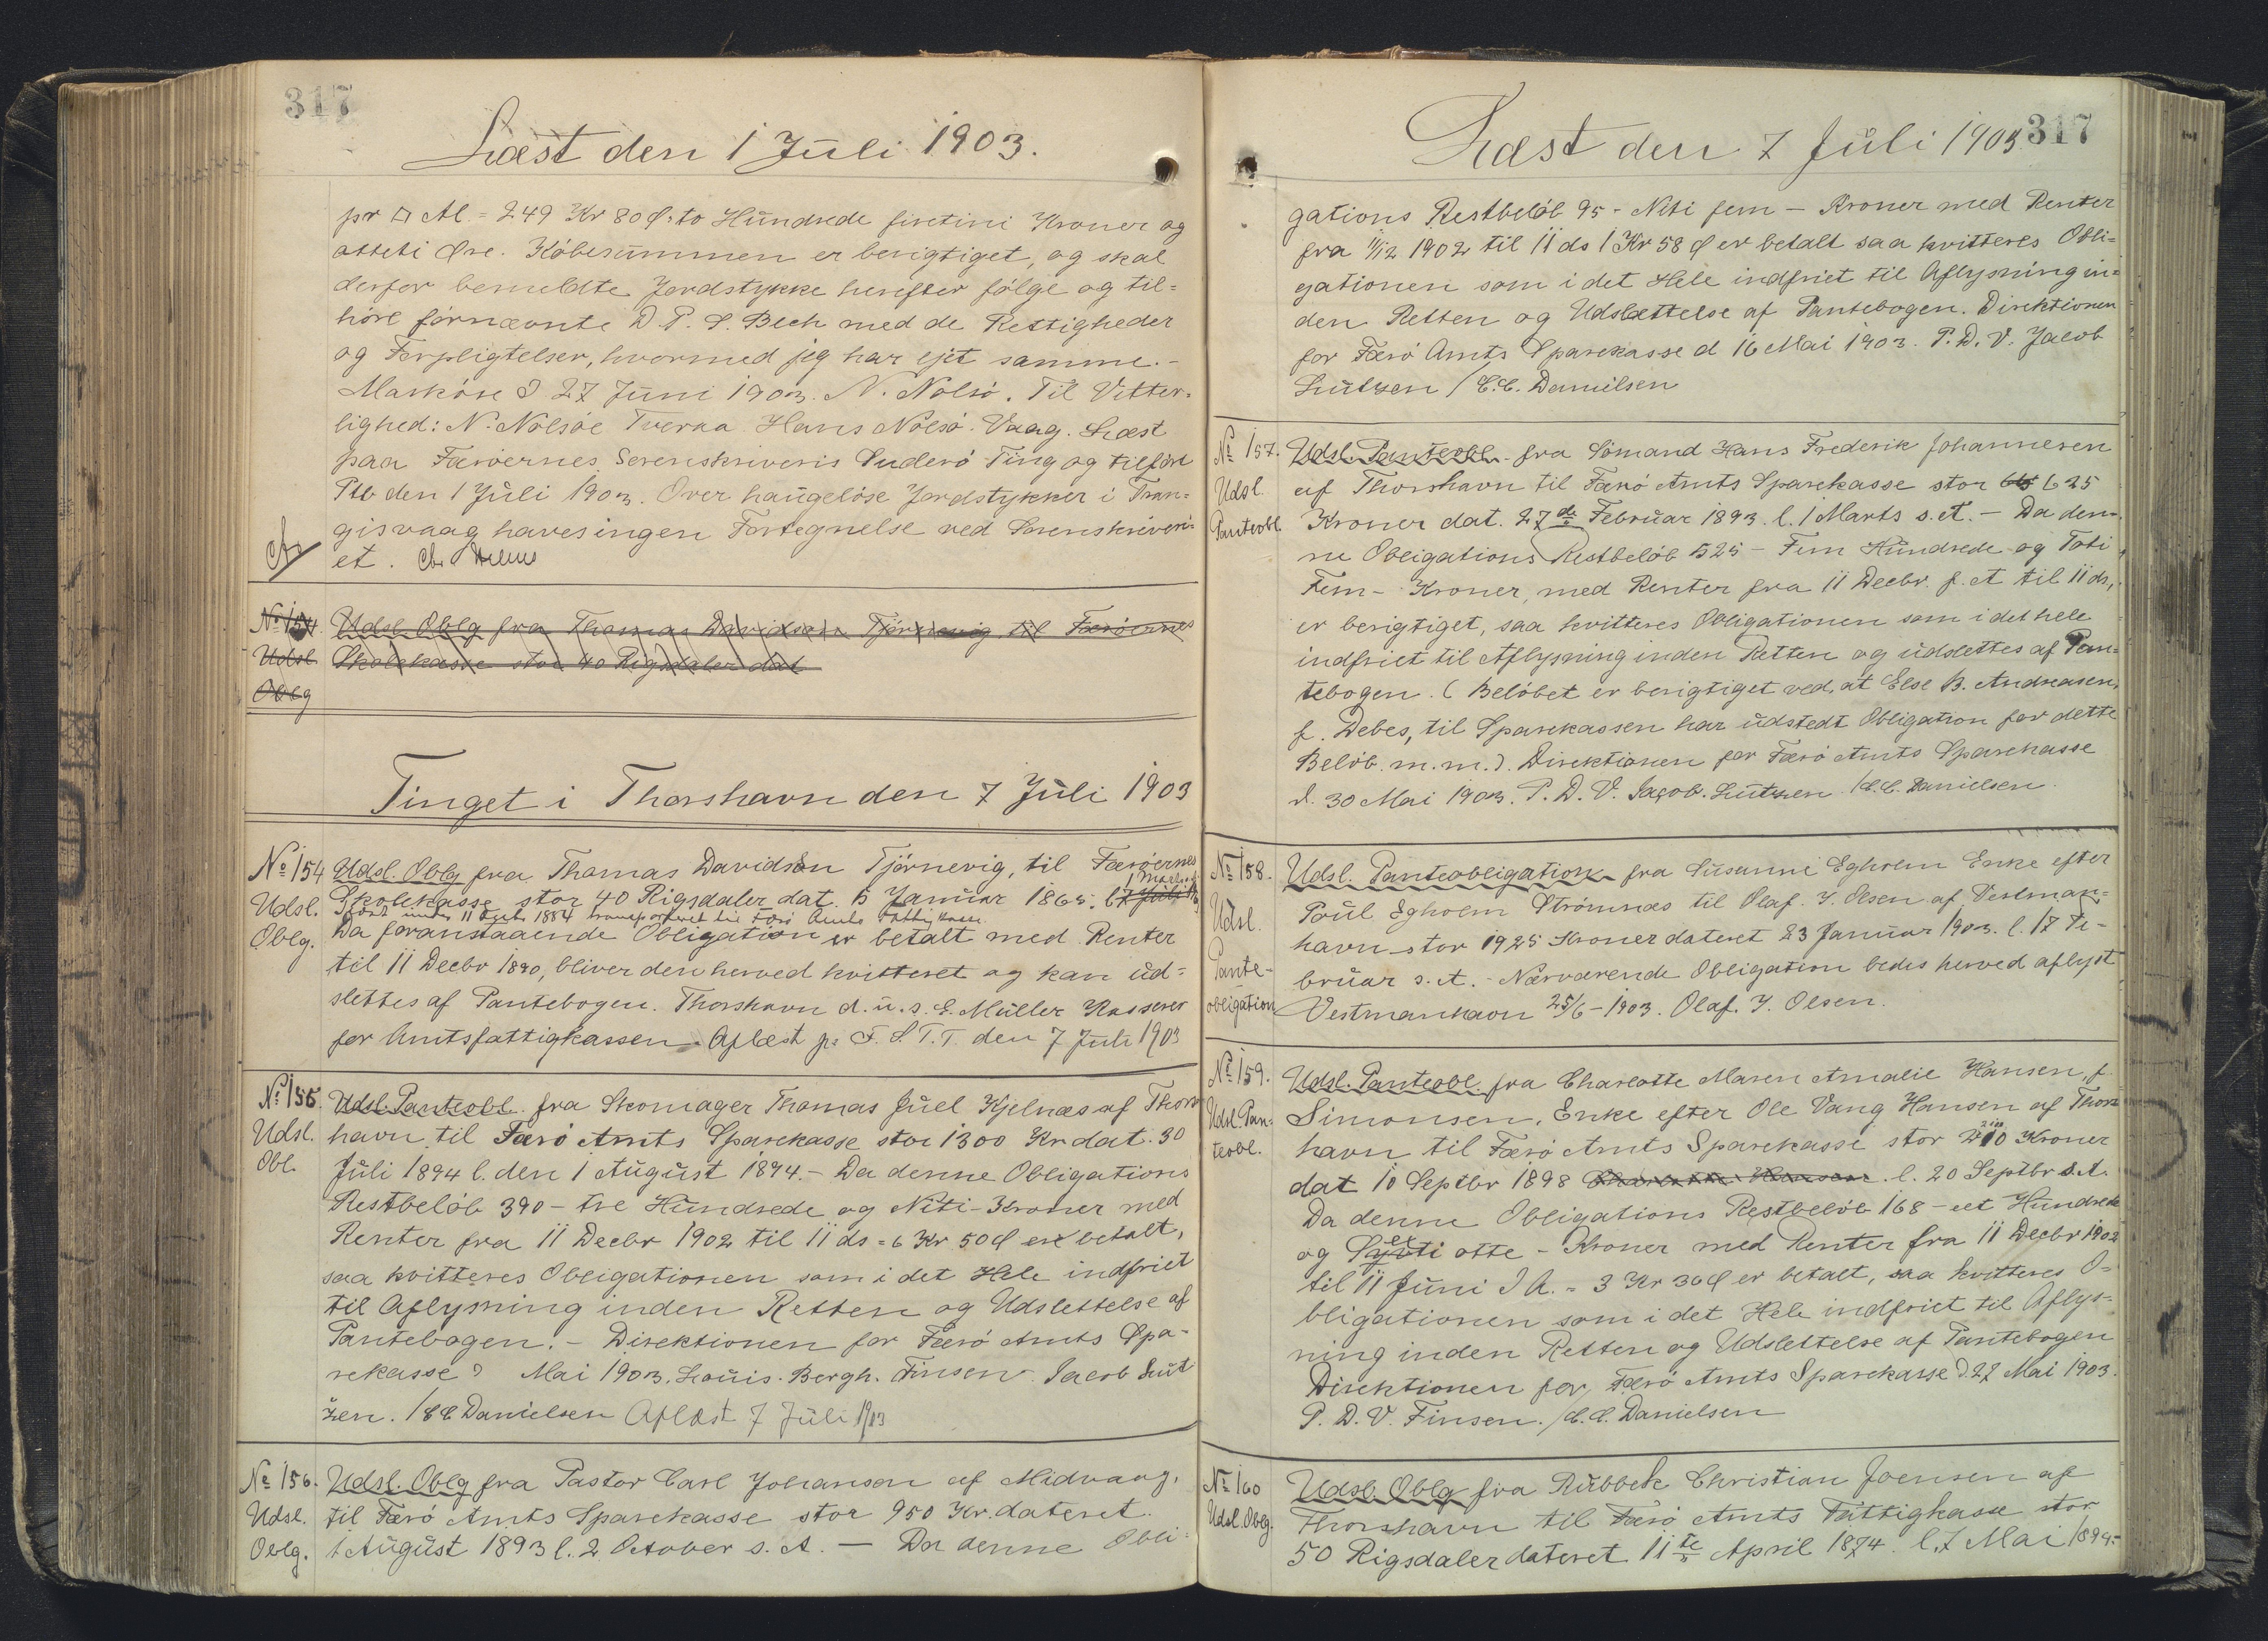 317
Læst den 1 Juli 1903.
pr □ Al. = 249 Kr 80 Ø: to Hundrede firetini Kroner og
otteti Øre. Köbesummen er berigtiget, og skal
derfor bemeldte Jordstykke herefter fölge og til=
höre förnævnte D. P. S. Bech med de Rettigheder
og Forpligtelser, hvormed jeg har ejet samme.-
27 Juni 1903. N. Nolsö. Til Vitter=
lighed: N. Nolsöe Tveraa. Hans Nolsö. Vaag. Læst
paa Færöernes Sorenskriveris Suderö Ting og tilfört
Ptb den 1 Juli 1903. Over haugelöse Jordstykker i Tran=
gisvaag haves ingen Fortegnelse ved Sorenskriveri=
et.
No 154 Udsl. Oblg fra Thomas Davidsen Tjörnevig til Færöernes
Udsl. Skolekasse stor 40 Rigsdaler dat
Oblg
Tinget i Thorshavn den 7 Juli 1903
No 154 Udsl. Oblg fra Thomas Davidsen Tjörnevig, til Færöernes
Udsl. Skolekasse stor 40 Rigsdaler dat. 5 Januar 1865. l.
under 11 1884 transporteret til Færö Amts Fattigkasse
Oblg. Da foranstaaende Obligation er betalt med Renter
til 11 Decbr 1890, bliver den herved kvitteret og kan ud=
slettes af Pantebogen. Thorshavn d. u. s. E. Müller Kasserer
for Amtsfattigkassen. Aflæst p. F. S. T. T. den 7 Juli 1903
No 155. Udsl. Panteobl. fra Skomager Thomas Juel Kjelnæs af Thors
Udsl. havn til Færö Amts Sparekasse stor 1300 Kr dat. 30
Obl. Juli 1894 l. den 1 August 1894.- Da denne Obligations
Restbelöb 390 - tre Hundrede og Niti - Kroner med
Renter fra 11 Decbr 1902 til 11 ds = 6 Kr 50 Ø er betalt,
saa kvitteres Obligationen som i det Hele indfriet
til Aflysning inden Retten og Udslettelse af
Pantebogen. - Direktionen for Færö Amts Spa-
rekasse d Mai 1903. Louis. Bergh. Finsen. Jacob Lut
zen. / C C Danielsen Aflæst 7 Juli 1903
No 156. Udsl. Oblg fra Pastor Carl Johanson af Midvaag,
Udsl. til Færö Amts Sparekasse stor 950 Kr. dateret
Oblg. 1 August 1893 l. 2 October s. A. — Da denne Obli=
317
Læst den 7 Juli 1903.
gations Restbelöb 95 - Niti fem - Kroner med Renter
fra 11/12 1902 til 11 ds 1 Kr 58 Ø er betalt saa kvitteres Obli=
gationen som i det Hele indfriet til Aflysning in=
den Retten og Udslættelse af Pantebogen. Direktionen
for Færö Amts Sparekasse d 16 Mai 1903. P. D. V. Jacob
Lutzen / C. C. Danielsen
No 157. Udsl. Panteobl. fra Sömand Hans Frederik Johannesen
Udsl. af Thorshavn til Færö Amts Sparekasse stor 625
Panteobl. Kroner dat. 27de Februar 1893. l. 1 Marts s. A. - Da den=
ne Obligations Restbelöb 525 - Fem Hundrede og Toti
Fem - Kroner, med Renter fra 11 Decbr. f. A til 11 ds,
er berigtiget, saa kvitteres Obligationen som i det hele
indfriet til Aflysning inden Retten og udslettes af Pan=
tebogen. (Belöbet er berigtiget ved, at Else B. Andreasen,
f. Debes, til Sparekassen har udstedt Obligation for dette
Belöb m. m.). Direktionen for Færö Amts Sparekasse
d. 30 Mai 1903. P. D. V. Jacob. Lutzen / C. C. Danielsen.
No 158. Udsl. Panteobligation fra Susanne Egholm Enke efter
Udsl. Poul Egholm Strömnæs til Olaf. J. Olsen af Vestman=
Pante- havn stor 1925 Kroner dateret 23 Januar 1903. l. 17 Fe-
obligation bruar s. A. - Nærværende Obligation bedes herved aflyst
Vestmanhavn 25/6 - 1903. Olaf. J. Olsen.
No 159. Udsl. Panteobl. fra Charlotte Maren Amalie Hansen, f.
Udsl. Pan= Simonsen, Enke efter Ole Vang Hansen af Thors
teobl. havn til Færö Amts Sparekasse stor 210 Kroner
dat 10 Septbr 1898 l. 20 Septbr s. A.
Da denne Obligations Restbelöb 168 - eet Hundrede
og Sexti otte - Kroner med Renter fra 11 Decbr 1902
til 11 Juni D A. = 3 Kr 36 Ø er betalt, saa kvitteres O=
bligationen som i det Hele indfriet til Aflys=
ning inden Retten og Udslettelse af Pantebogen
Direktionen for Færö Amts Sparekasse d. 27 Mai 1903.
P. D. V. Finsen. / C. C. Danielsen
No 160 Udsl. Oblg fra Rubbek Christian Joensen af
Udsl. Oblg. Thorshavn til Færö Amts Fattigkasse stor
50 Rigsdaler dateret 11te April 1874. l. 7 Mai 1894.